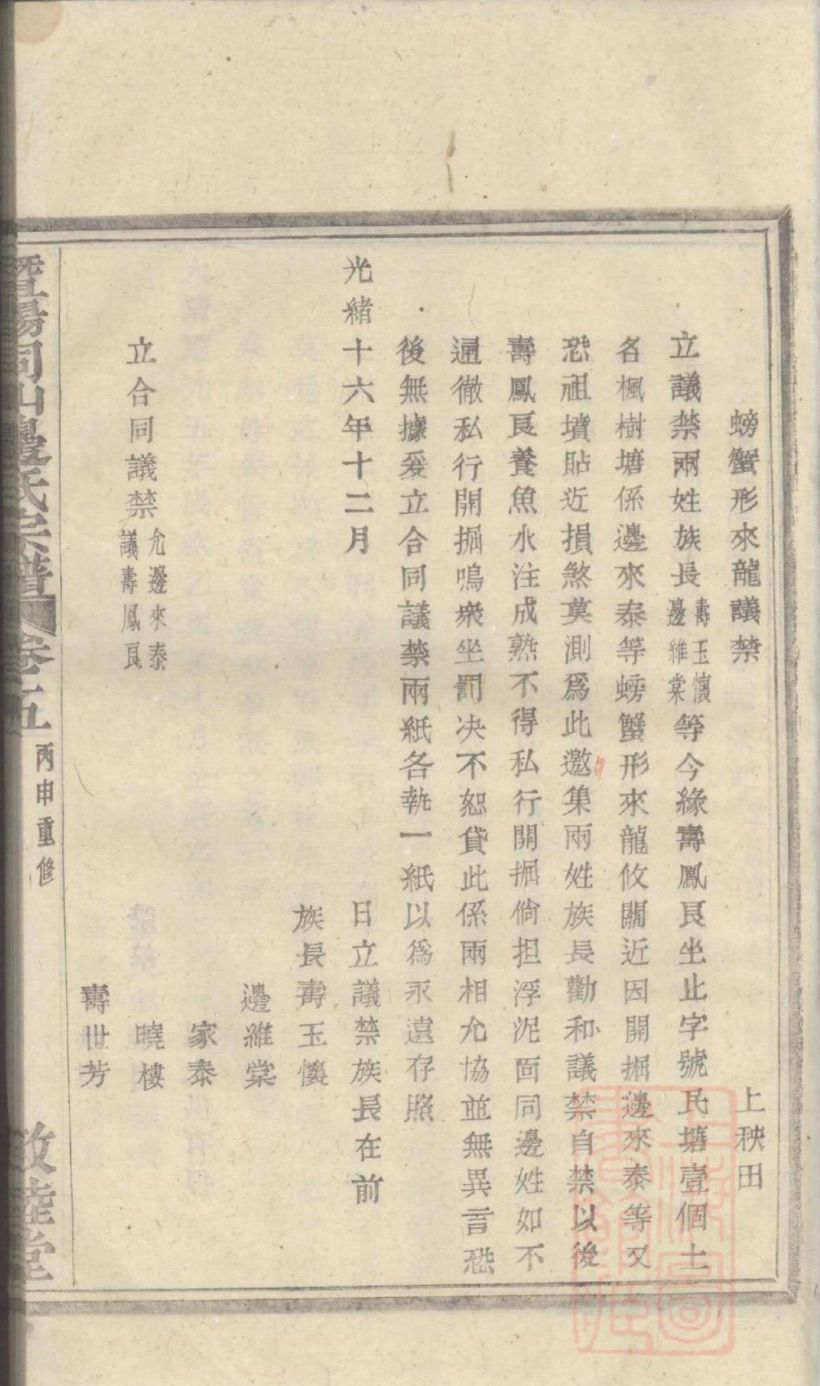 螃蟹形來龍議禁　上秧田
立議禁兩姓族長壽玉懷邊維棠等今緣壽鳳良坐止字號民塘壹個土
名楓樹塘係邊來泰等螃蟹形來龍攸關近因開掘邊來泰等又
恐祖墳貼近損煞莫測爲此邀集兩姓族長勸和議禁自禁以後
壽鳳良養魚水注成熟不得私行開掘倘担浮泥面同邊姓如不
通徹私行開掘鳴衆坐罰決不恕貸此係兩相允協並無異言恐
後無據爰立合同議禁兩紙各執一紙以爲永遠存照
光緒十六年十二月　日立議禁族長在前
族長壽玉懷
邊維棠
家泰
立合同議禁允邊來泰議壽鳳良　曉樓
壽世芳
暨陽同山邊氏宗譜　卷十五　丙申重修　敦睦堂